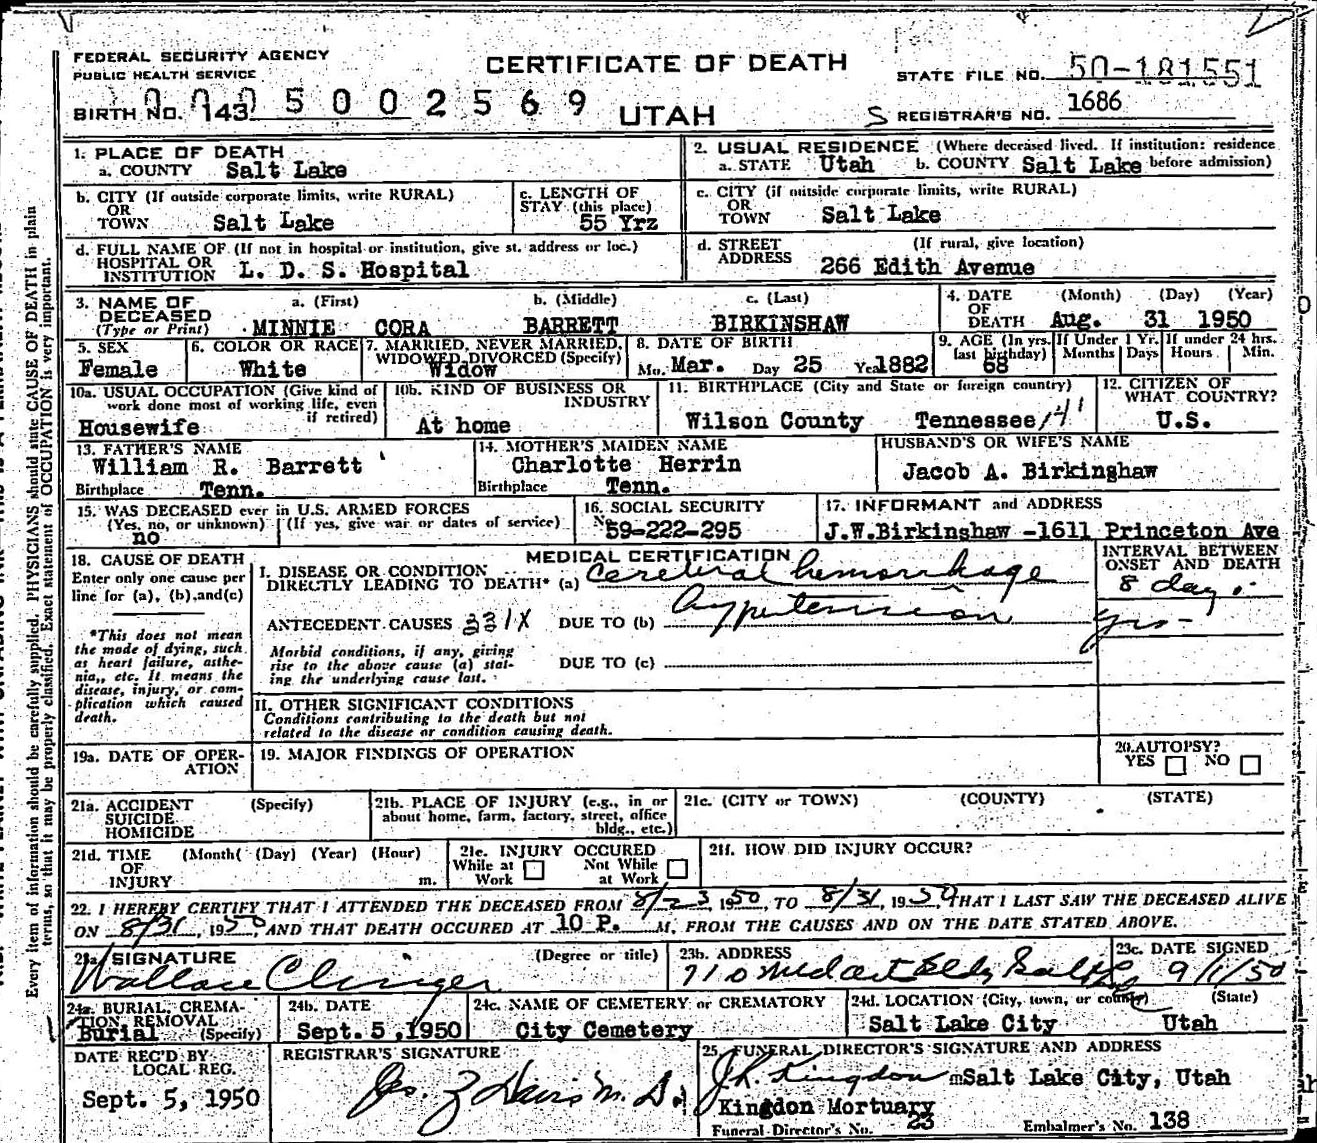 FEDERAL SECURITY AGENCY
PUBLIC HEALTH SERVICE
CERTIFICATE OF DEATH
UTAH
STATE FILE NO. 50-181551
BIRTH NO. 143 5002569
S REGISTRAR'S NO. 1686
1. PLACE OF DEATH
a. COUNTY Salt Lake
2. USUAL RESIDENCE (Where deceased lived. If institution: residence before admission)
a. STATE Utah b. COUNTY Salt Lake
b. CITY (If outside corporate limits, write RURAL)
OR
TOWN Salt Lake
c. LENGTH OF STAY (this place)
55 Yrz
c. CITY (if outside corporate limits, write RURAL)
OR
TOWN Salt Lake
d. FULL NAME OF (If not in hospital or institution, give st. address or loc.)
HOSPITAL OR
INSTITUTION L. D. S. Hospital
d. STREET ADDRESS (If rural, give location)
266 Edith Avenue
3. NAME OF DECEASED
(Type or Print)
a. (First) b. (Middle) c. (Last)
MINNIE CORA BARRETT BIRKINSHAW
4. DATE OF DEATH (Month) (Day) (Year)
Aug. 31 1950
5. SEX
Female
6. COLOR OR RACE
White
7. MARRIED, NEVER MARRIED, WIDOWED, DIVORCED (Specify)
Widow
8. DATE OF BIRTH
Mo. Mar. Day 25 Yr 1882
9. AGE (In yrs. last birthday) If Under 1 Yr. If under 24 hrs.
68 Months Days Hours Min.
10a. USUAL OCCUPATION (Give kind of work done most of working life, even if retired)
Housewife
10b. KIND OF BUSINESS OR INDUSTRY
At home
11. BIRTHPLACE (City and State or foreign country)
Wilson County Tennessee
12. CITIZEN OF WHAT COUNTRY?
U.S.
13. FATHER'S NAME
William R. Barrett
Birthplace Tenn.
14. MOTHER'S MAIDEN NAME
Charlotte Herrin
Birthplace Tenn.
HUSBAND'S OR WIFE'S NAME
Jacob A. Birkinshaw
15. WAS DECEASED ever in U.S. ARMED FORCES
(Yes, no, or unknown) (If yes, give war or dates of service)
no
16. SOCIAL SECURITY
No 59-222-295
17. INFORMANT and ADDRESS
J.W.Birkinshaw -1611 Princeton Ave
18. CAUSE OF DEATH
Enter only one cause per line for (a), (b), and (c)
*This does not mean the mode of dying, such as heart failure, asthenia,, etc. It means the disease, injury, or complication which caused death.
MEDICAL CERTIFICATION
I. DISEASE OR CONDITION
DIRECTLY LEADING TO DEATH* (a) Cerebral hemorrhage
ANTECEDENT CAUSES 331X DUE TO (b) Hypertension
Morbid conditions, if any, giving rise to the above cause (a) stating the underlying cause last.
DUE TO (c)
INTERVAL BETWEEN ONSET AND DEATH
8 days
yrs-
II. OTHER SIGNIFICANT CONDITIONS
Conditions contributing to the death but not
related to the disease or condition causing death.
19a. DATE OF OPERATION
19. MAJOR FINDINGS OF OPERATION
20. AUTOPSY?
YES NO
21a. ACCIDENT (Specify)
SUICIDE
HOMICIDE
21b. PLACE OF INJURY (e.g., in or about home, farm, factory, street, office bldg., etc.)
21c. (CITY or TOWN) (COUNTY) (STATE)
21d. TIME (Month( (Day) (Year) (Hour)
OF
INJURY m.
21e. INJURY OCCURED
While at Work Not While at Work
21f. HOW DID INJURY OCCUR?
22. I HEREBY CERTIFY THAT I ATTENDED THE DECEASED FROM 8/23, 1950, TO 8/31, 1950 THAT I LAST SAW THE DECEASED ALIVE
ON 8/31, 1950, AND THAT DEATH OCCURED AT 10 P. M, FROM THE CAUSES AND ON THE DATE STATED ABOVE.
23a. SIGNATURE (Degree or title)
Wallace Clinger
23b. ADDRESS
710 Med Art Bldg Salt
23c. DATE SIGNED
9/1/50
24a. BURIAL, CREMATION REMOVAL
Burial (Specify)
24b. DATE
Sept. 5 ,1950
24c. NAME OF CEMETERY or CREMATORY
City Cemetery
24d. LOCATION (City, town, or county) (State)
Salt Lake City Utah
DATE REC'D BY LOCAL REG.
Sept. 5, 1950
REGISTRAR'S SIGNATURE
Jos. Z Davis M.D.
25. FUNERAL DIRECTOR'S SIGNATURE AND ADDRESS
J.R. Kingdon mSalt Lake City, Utah
Kingdon Mortuary
Funeral Director's No. 23 Embalmer's No. 138
Every item of information should be carefully supplied. PHYSICIANS should state CAUSE OF DEATH in plain
terms, so that it may be properly classified. Exact statement of OCCUPATION is very important.